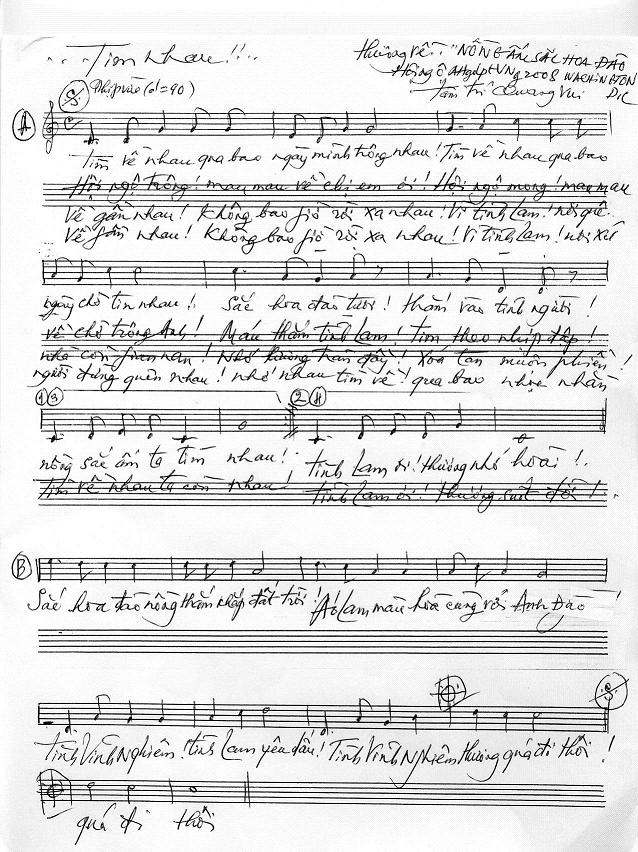 Tìm nhau!!..
Hướng về.. "NỒNG ẤM SẮC HOA ĐÀO
Hội ngộ AHgđptVNg 2008 WASHINGTON
Nhịp vào (♩=90)
Tâm Trí Quang Vui D.C
A
Tìm về nhau qua bao ngày mình trông nhau! Tìm về nhau qua bao
Hội ngộ trông! mau mau về chị em ơi! Hội ngộ mong! mau mau
Về gần nhau! Không bao giờ rời xa nhau! Vì tình Lam! nơi quê
Về gần nhau! Không bao giờ rời xa nhau! Vì tình Lam! nơi xứ
ngày chờ tin nhau!. Sắc hoa đào tươi! thắm vào tình người!
về chờ trông Anh! Màu thắm tình Lam! Tim theo nhịp đập!
nhà còn gian nan! Nhớ hương tràn đầy! Xóa tan muôn phiền!
người đừng quên nhau! nhớ nhau tìm về! qua bao nhọc nhằn
1 3 2 4
nồng sắc ấm ta tìm nhau! Tình Lam ơi! thương nhớ hoài!.
Tìm về nhau ta còn nhau! Tình Lam ơi! thương suốt đời!.
B
Sắc hoa đào nồng thắm khắp đất trời! Áo Lam màu hòa cùng với Anh Đào!
Tình Vĩnh Nghiêm! tình Lam yêu dấu! Tình Vĩnh Nghiêm thương quá đi thôi!
quá đi thôi